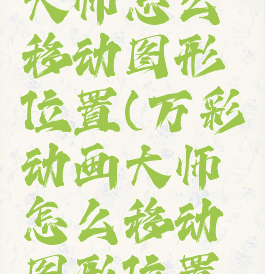 大师怎么
移动图形
位置(万彩
动画大师
怎么移动
图形位置